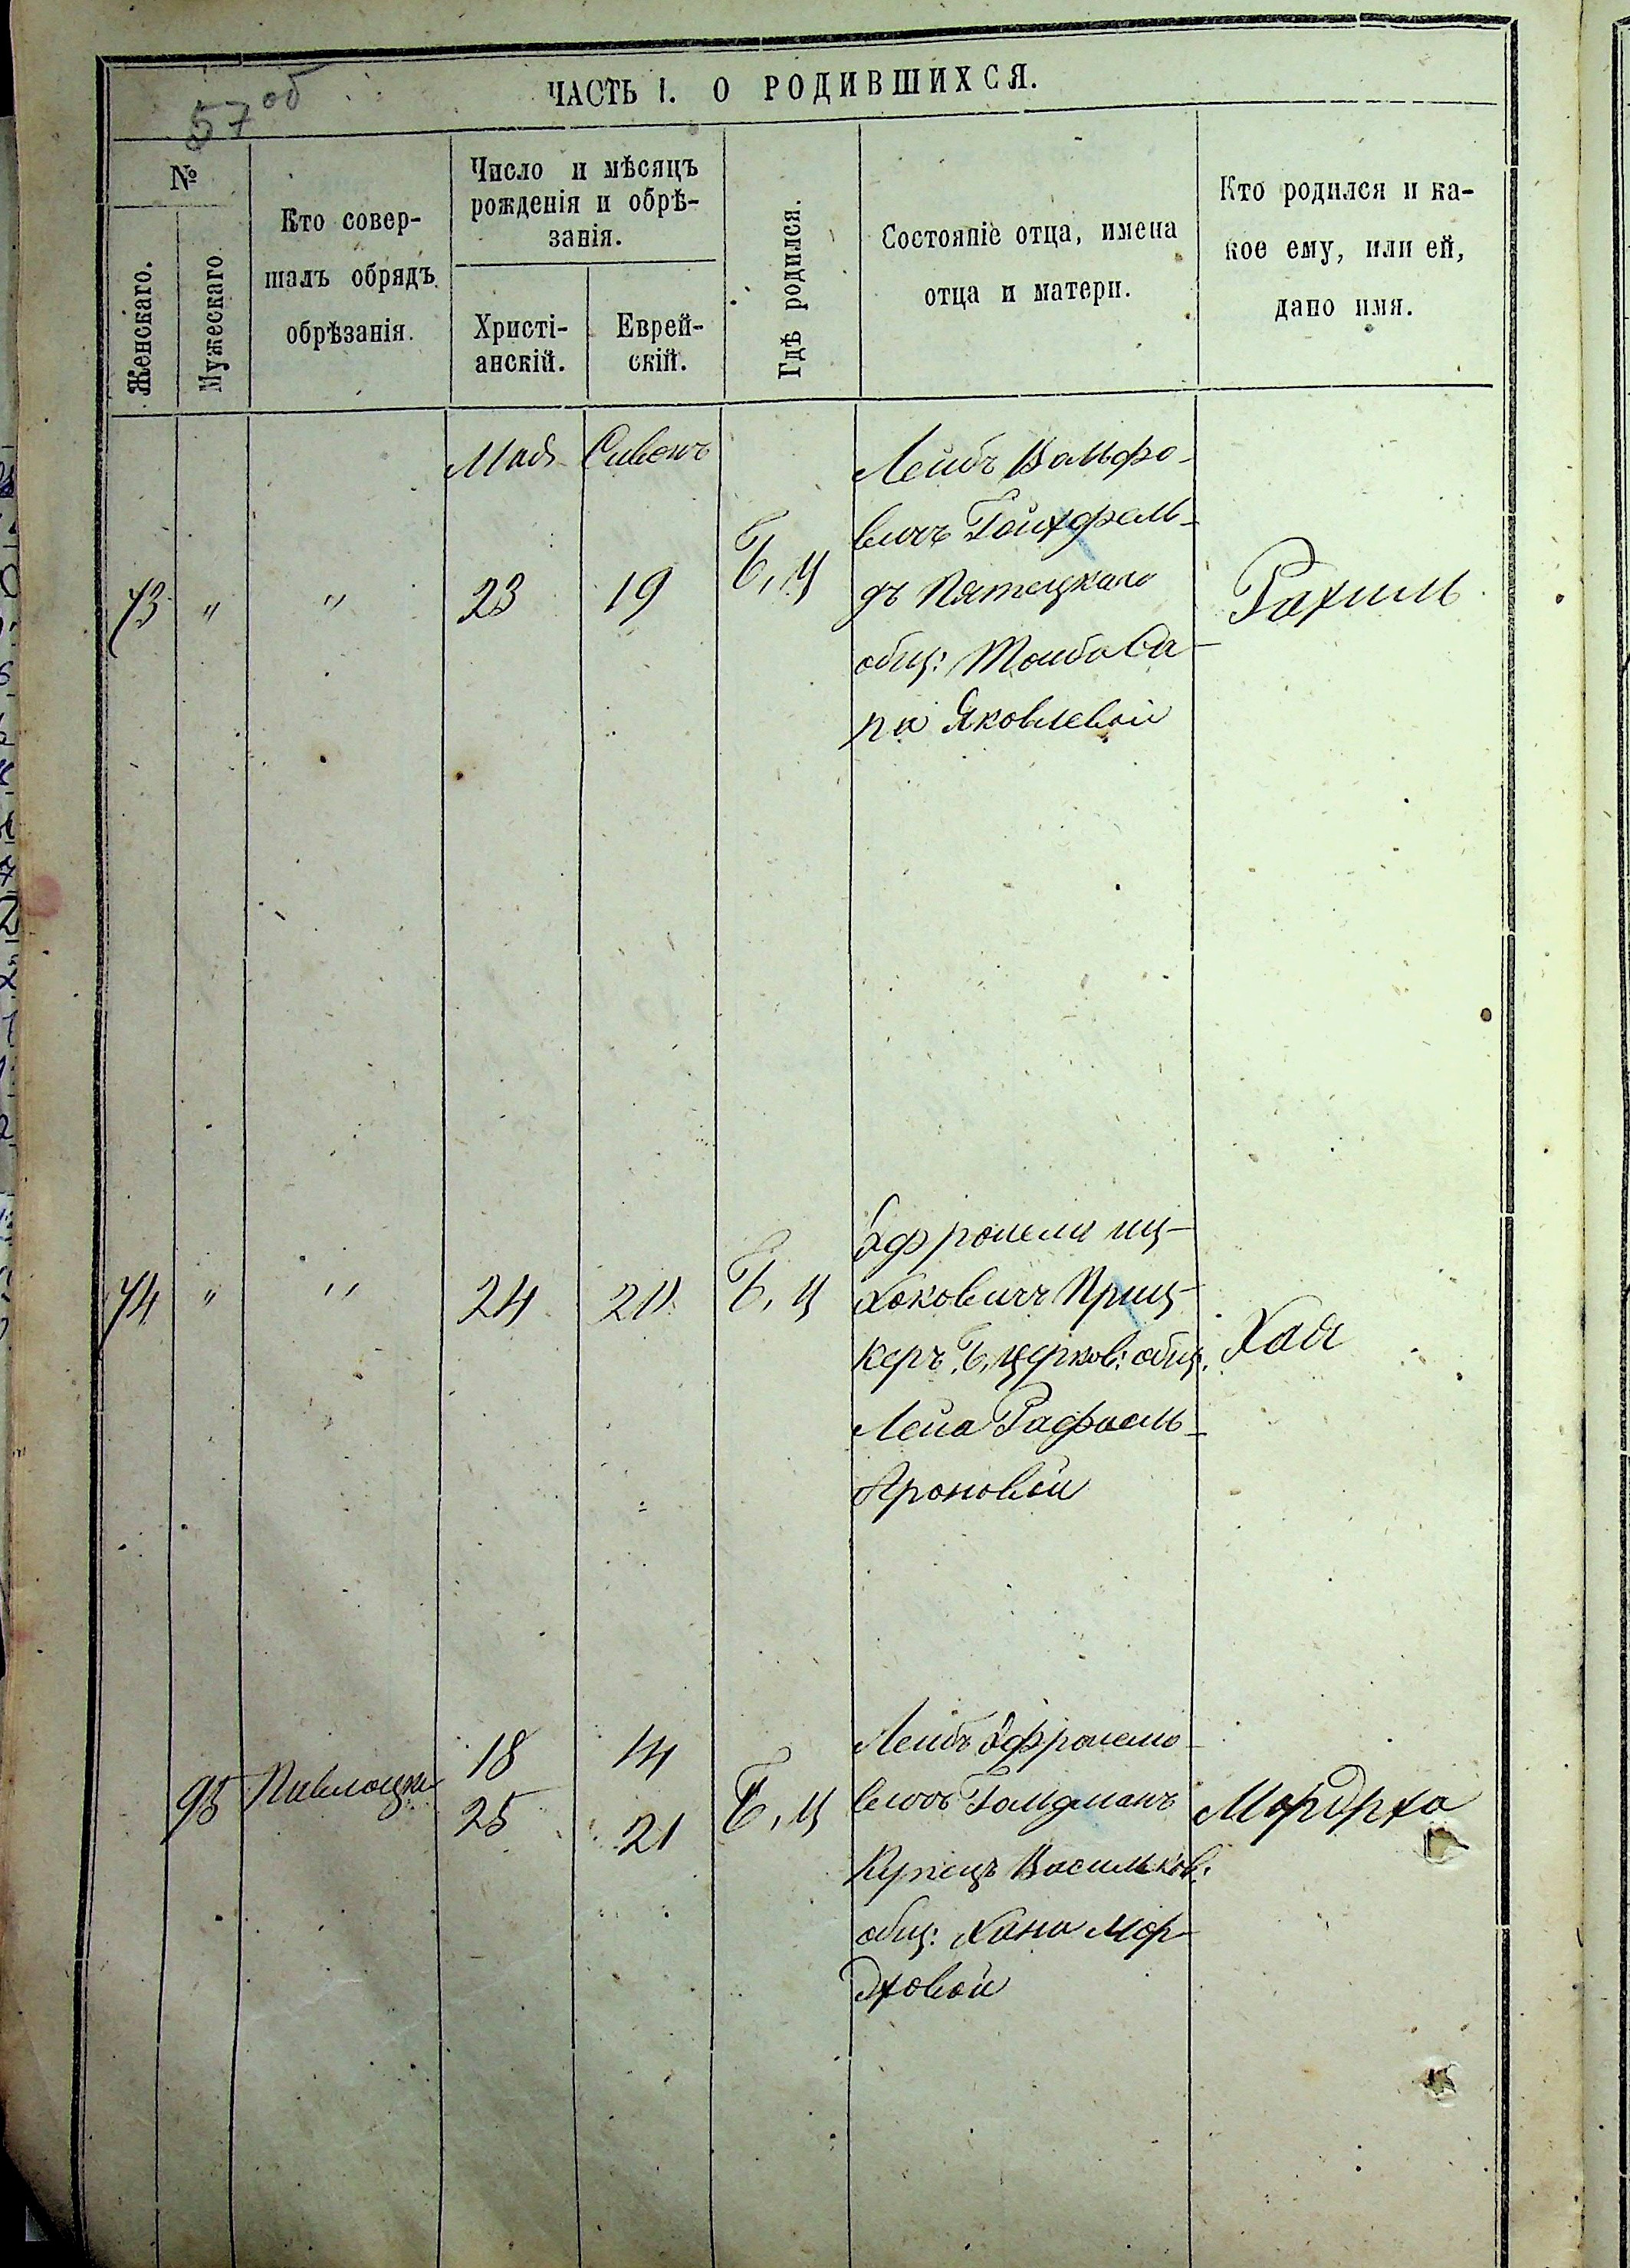 57 об
ЧАСТЬ I. О РОДИВШИХСЯ.
№
Женскаго.
Мужескаго
Кто совер-
шалъ обрядъ
обрѣзанія.
Число и мѣсяцъ
рожденія и обрѣ-
занія.
Христі-
анскій.
Еврей-
скій.
Гдѣ родился.
Состояніе отца, имена
отца и матери.
Кто родился и ка-
кое ему, или ей,
дано имя.
Мая Сивонъ
73 " " 23 19 Б, Ц
Лейбъ Вольфо-
вичъ Гойхфель-
дъ Пятецкаго
общ: Тойба Са-
ра Яковлевой
Рахиль
74 " " 24 20 Б, Ц
Эфроимъ Иц-
хоковичъ Приц-
керъ Б, Церков: общ.
Лейа Рафаель-
Ароновой
Хая
95 Павлоцки 18 14 Б, Ц
25 21
Лейбъ Эфроимо-
вичъ Голдманъ
Купецъ Васильков:
общ: Хана Мор-
дховой
Мордха